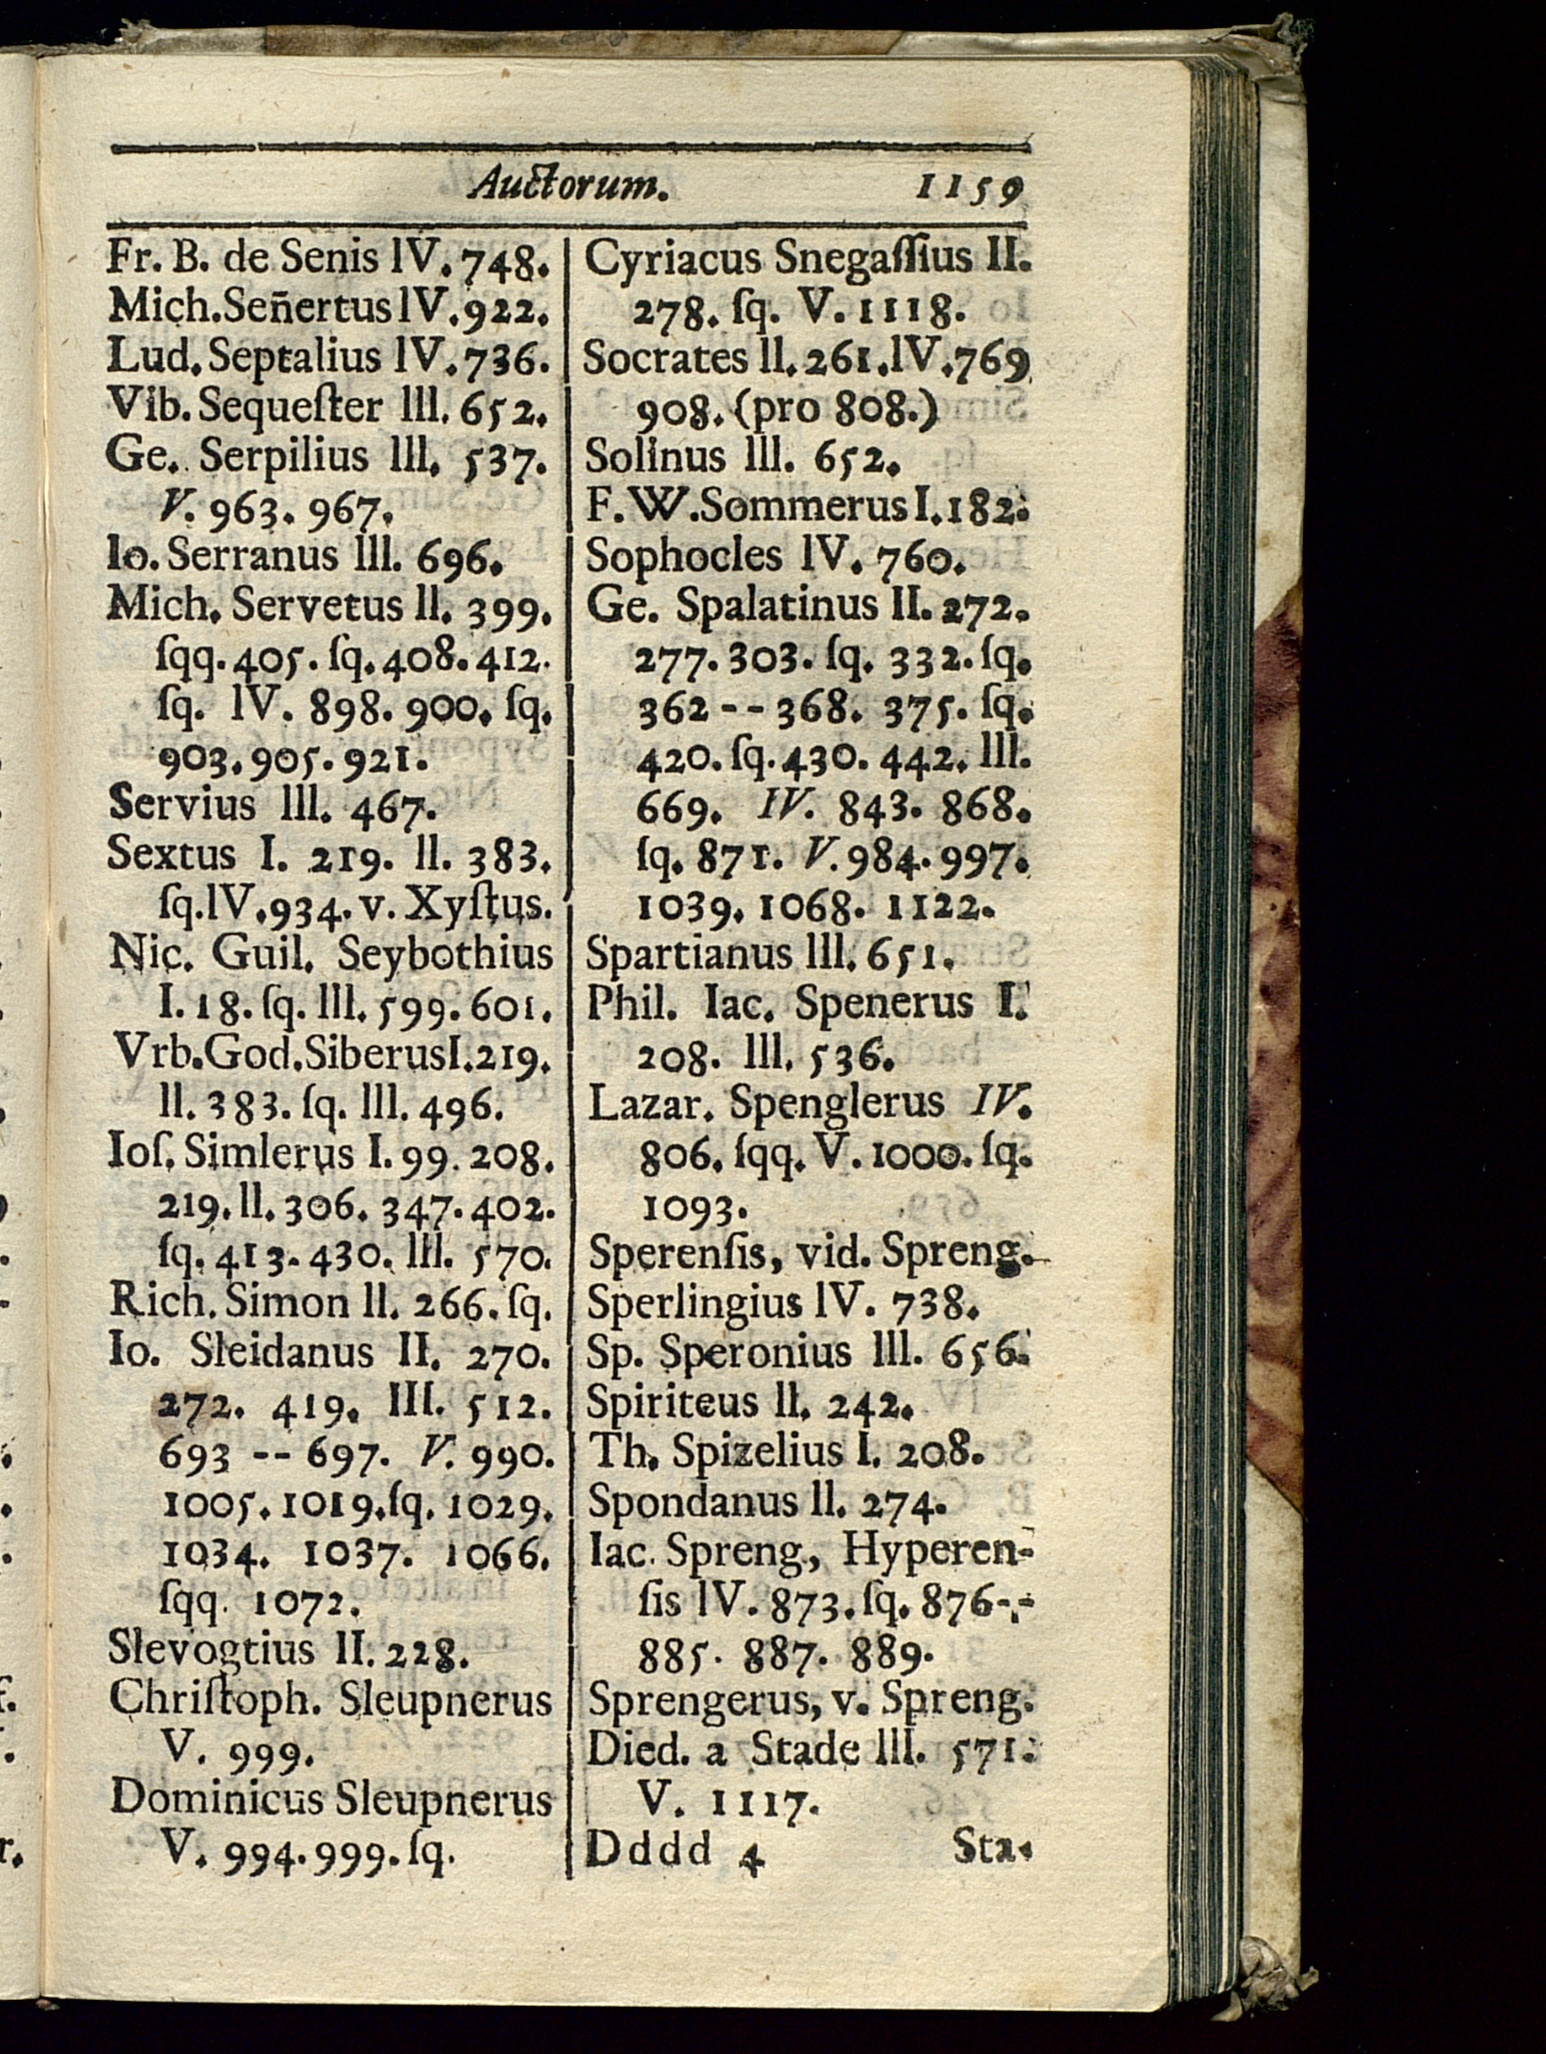 Auctorum. 1159
Fr. B. de Senis IV. 748.
Mich. Sen̄ertus IV. 922.
Lud. Septalius IV. 736.
Vib. Sequeſter III. 652.
Ge. Serpilius III. 537.
V. 963. 967.
Io. Serranus III. 696.
Mich. Servetus II. 399.
ſqq. 405. ſq. 408. 412.
ſq. IV. 898. 900. ſq.
903. 905. 921.
Servius III. 467.
Sextus I. 219. II. 383.
ſq. IV. 934. v. Xyſtus.
Nic. Guil. Seybothius
I. 18. ſq. III. 599. 601.
Vrb. God. Siberus I. 219.
II. 383. ſq. III. 496.
Ioſ. Simlerus I. 99. 208.
219. II. 306. 347. 402.
ſq. 413. 430. III. 570.
Rich. Simon II. 266. ſq.
Io. Sleidanus II. 270.
272. 419. III. 512.
693 -- 697. V. 990.
1005. 1019. ſq. 1029.
1034. 1037. 1066.
ſqq. 1072.
Slevogtius II. 228.
Chriſtoph. Sleupnerus
V. 999.
Dominicus Sleupnerus
V. 994. 999. ſq.
Cyriacus Snegaſſius II.
278. ſq. V. 1118.
Socrates II. 261. IV. 769
908. (pro 808.)
Solinus III. 652.
F. W. Sommerus I. 182.
Sophocles IV. 760.
Ge. Spalatinus II. 272.
277. 303. ſq. 332. ſq.
362 -- 368. 375. ſq.
420. ſq. 430. 442. III.
669. IV. 843. 868.
ſq. 871. V. 984. 997.
1039. 1068. 1122.
Spartianus III. 651.
Phil. Iac. Spenerus I.
208. III. 536.
Lazar. Spenglerus IV.
806. ſqq. V. 1000. ſq.
1093.
Sperenſis, vid. Spreng.
Sperlingius IV. 738.
Sp. Speronius III. 656.
Spiriteus II. 242.
Th. Spizelius I. 208.
Spondanus II. 274.
Iac. Spreng, Hyperen-
ſis IV. 873. ſq. 876--
885. 887. 889.
Sprengerus, v. Spreng.
Died. a Stade III. 571.
V. 1117.
Dddd 4 Sta-